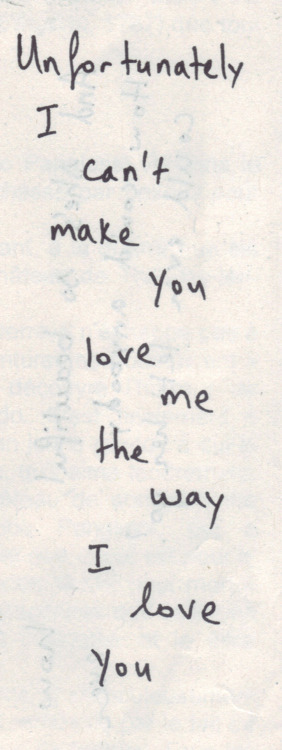 Unfortunately
I
can't
make
you
love
me
the
way
I
love
You